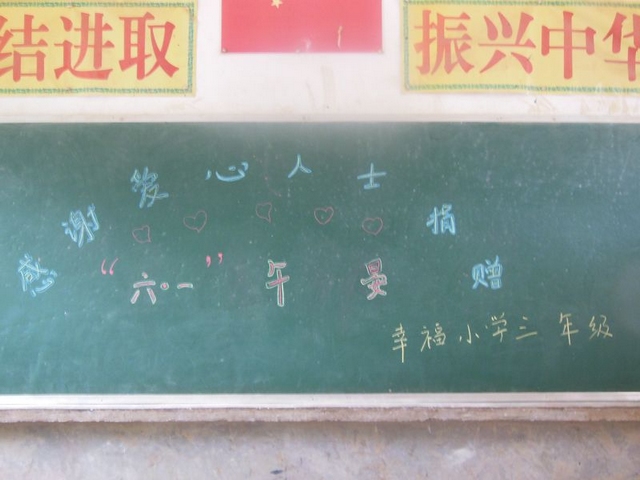 结进取
振兴中华
感谢爱心人士捐赠
“六·一”午晏
幸福小学三年级